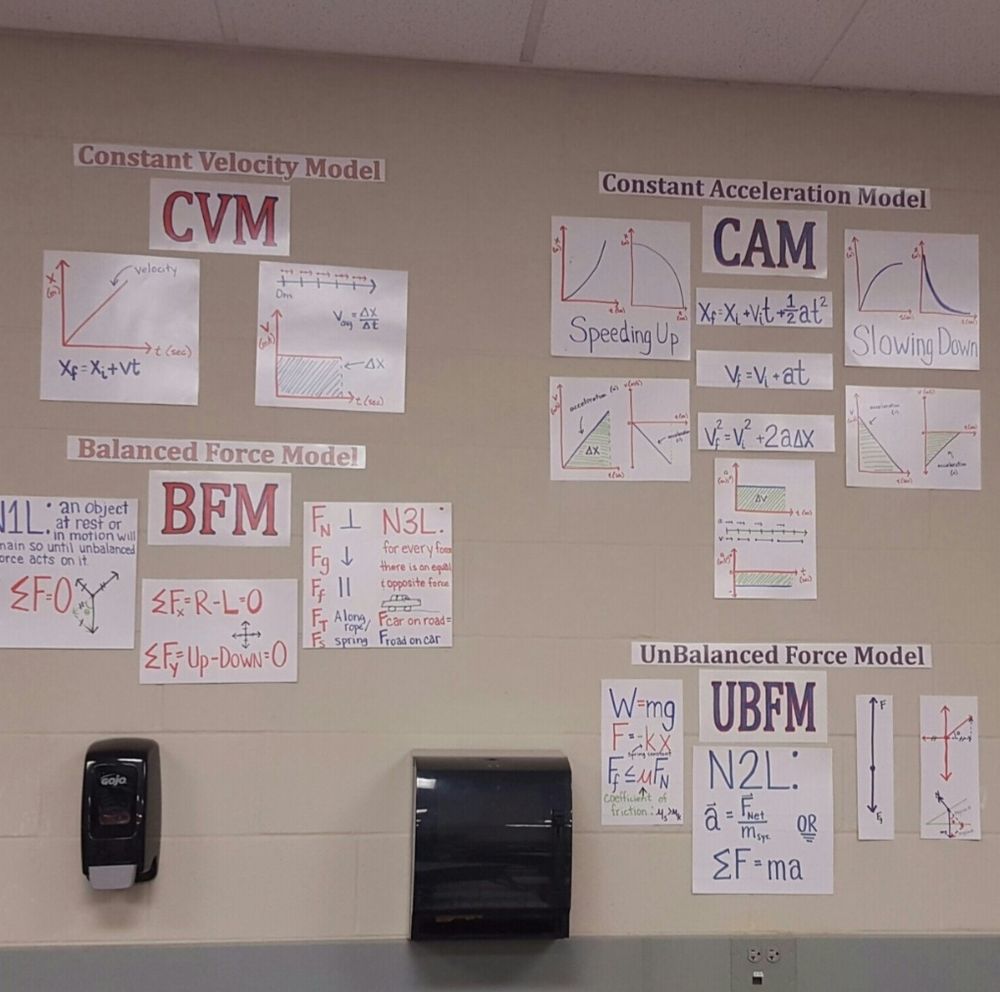 Constant Velocity Model
CVM
x
(m)
velocity
t (sec)
Xf=Xi+vt
0m
Vavg=Δx/Δt
V
(m/s)
ΔX
t (sec)
Balanced Force Model
BFM
N1L: an object
at rest or
in motion will
main so until unbalanced
orce acts on it
ΣF=0
ΣFx=R-L=0
ΣFy=Up-Down=0
FN ⊥
Fg ↓
Ff ||
FT Along rope/
Fs spring
N3L:
for every force
there is an equal
+ opposite force
Fcar on road=
Froad on car
Constant Acceleration Model
CAM
Speeding Up
Xf=Xi+Vit+½at²
Slowing Down
Vf=Vi+at
acceleration
ΔX
acceleration
Vf²=Vi²+2aΔx
acceleration
acceleration
ΔV
UnBalanced Force Model
UBFM
W=mg
F=-kx
spring constant
Ff≤μFN
coefficient of
friction: μs>μk
N2L:
a⃗=F⃗Net/msys OR
ΣF=ma
F
GOJO